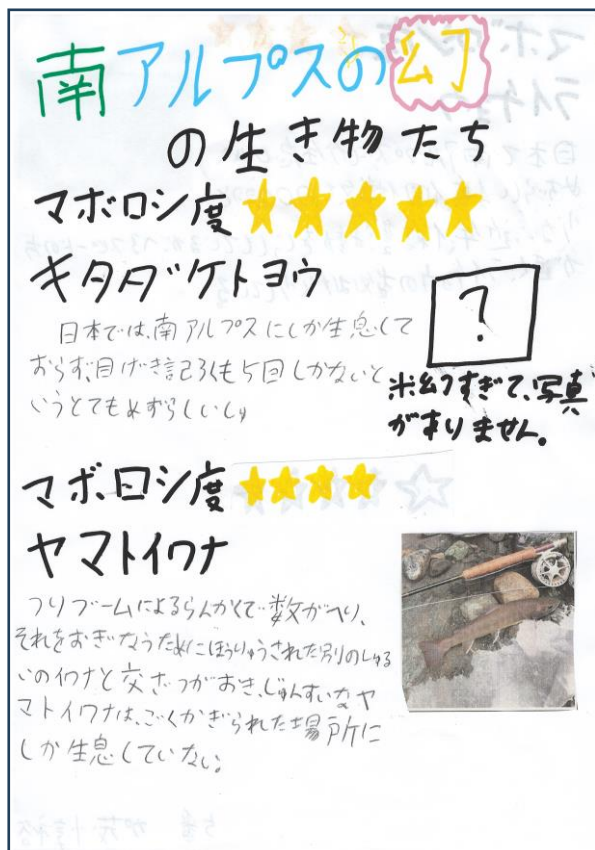 南アルプスの幻
の生き物たち
マボロシ度 ★★★★★
キタダケトヨウ
日本では、南アルプスにしか生息して
おらず、目げき記ろくも5回しかないと
いうとてもめずらしいしゅ
?
※幻すぎて、写真
がありません。
マボロシ度 ★★★★☆
ヤマトイワナ
つりブームによるらんかくで数がへり、
それをおぎなうためにほうりゅうされた別のしゅる
いのイワナと交ざつがおき、じゅんすいなヤ
マトイワナは、ごくかぎられた場所に
しか生息していない。